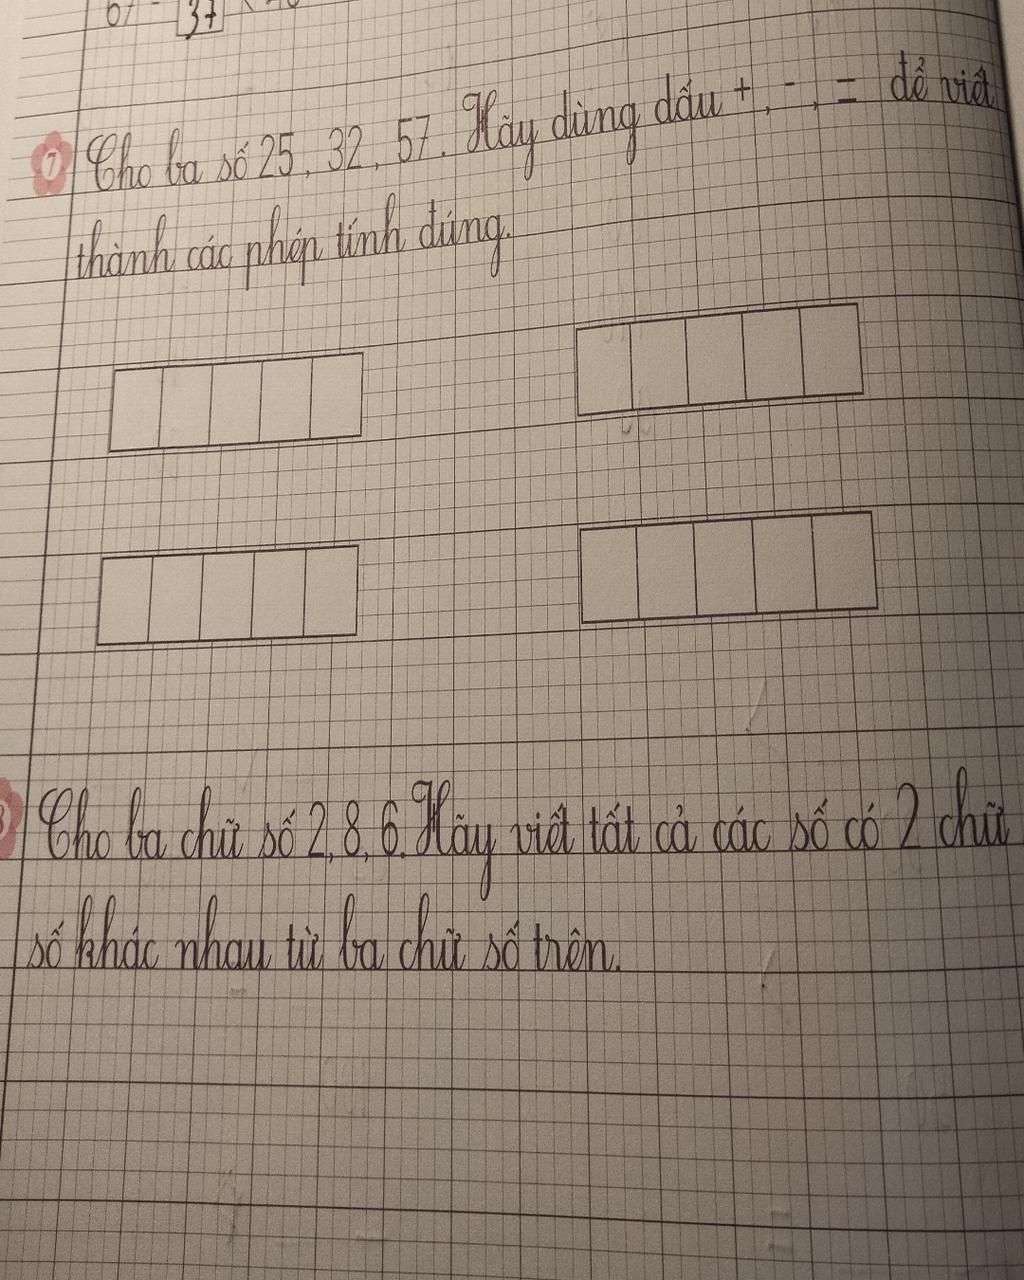 37
7 Cho ba số 25, 32, 57. Hãy dùng dấu +, -, = để viết
thành các phép tính đúng.
Cho ba chữ số 2, 8, 6. Hãy viết tất cả các số có 2 chữ
số khác nhau từ ba chữ số trên.